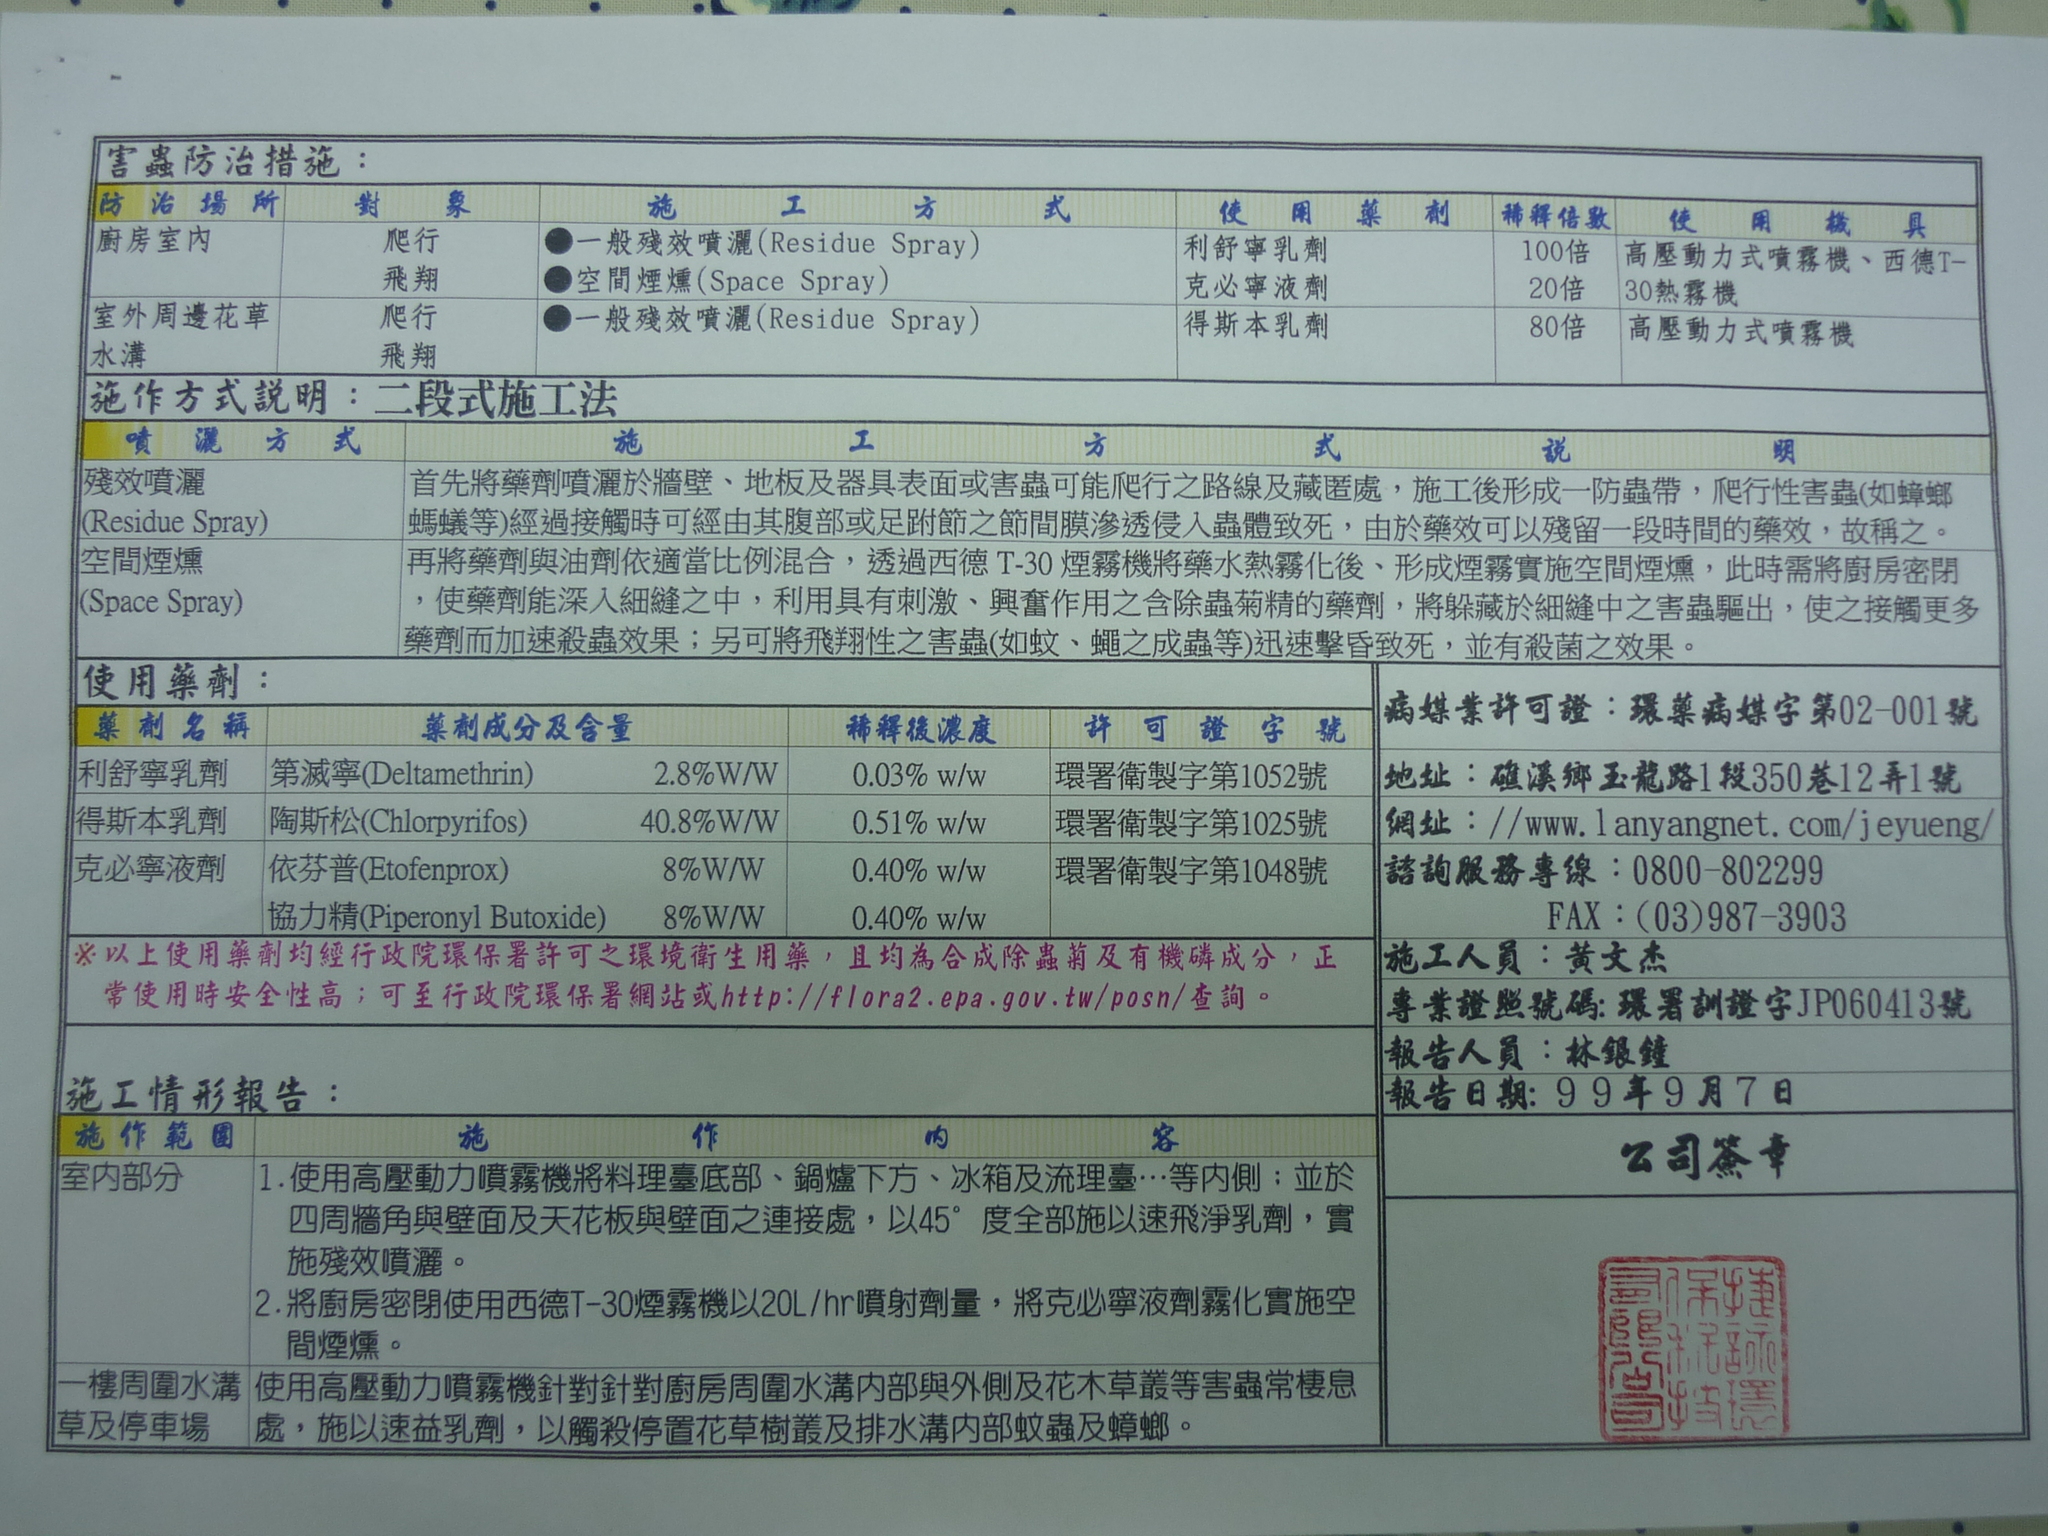 害蟲防治措施：
防治場所 對象 施工方式 使用藥劑 稀釋倍數 使用機具
廚房室內 爬行 ●一般殘效噴灑(Residue Spray) 利舒寧乳劑 100倍 高壓動力式噴霧機、西德T-
飛翔 ●空間煙燻(Space Spray) 克必寧液劑 20倍 30熱霧機
室外周邊花草 爬行 ●一般殘效噴灑(Residue Spray) 得斯本乳劑 80倍 高壓動力式噴霧機
水溝 飛翔
施作方式說明：二段式施工法
噴灑方式 施工方式說明
殘效噴灑 首先將藥劑噴灑於牆壁、地板及器具表面或害蟲可能爬行之路線及藏匿處，施工後形成一防蟲帶，爬行性害蟲(如蟑螂
(Residue Spray) 螞蟻等)經過接觸時可經由其腹部或足跗節之節間膜滲透侵入蟲體致死，由於藥效可以殘留一段時間的藥效，故稱之。
空間煙燻 再將藥劑與油劑依適當比例混合，透過西德 T-30 煙霧機將藥水熱霧化後、形成煙霧實施空間煙燻，此時需將廚房密閉
(Space Spray) ，使藥劑能深入細縫之中，利用具有刺激、興奮作用之含除蟲菊精的藥劑，將躲藏於細縫中之害蟲驅出，使之接觸更多
藥劑而加速殺蟲效果；另可將飛翔性之害蟲(如蚊、蠅之成蟲等)迅速擊昏致死，並有殺菌之效果。
使用藥劑：
藥劑名稱 藥劑成分及含量 稀釋後濃度 許可證字號
利舒寧乳劑 第滅寧(Deltamethrin) 2.8%W/W 0.03% w/w 環署衛製字第1052號
得斯本乳劑 陶斯松(Chlorpyrifos) 40.8%W/W 0.51% w/w 環署衛製字第1025號
克必寧液劑 依芬普(Etofenprox) 8%W/W 0.40% w/w 環署衛製字第1048號
協力精(Piperonyl Butoxide) 8%W/W 0.40% w/w
※以上使用藥劑均經行政院環保署許可之環境衛生用藥，且均為合成除蟲菊及有機磷成分，正
常使用時安全性高；可至行政院環保署網站或http://flora2.epa.gov.tw/posn/查詢。
病媒業許可證：環藥病媒字第02-001號
地址：礁溪鄉玉龍路1段350巷12弄1號
網址：//www.lanyangnet.com/jeyueng/
諮詢服務專線：0800-802299
FAX：(03)987-3903
施工人員：黃文杰
專業證照號碼:環署訓證字JP060413號
報告人員：林銀鐘
報告日期:９９年９月７日
公司簽章
施工情形報告：
施作範圍 施作內容
室內部分 1.使用高壓動力噴霧機將料理臺底部、鍋爐下方、冰箱及流理臺…等內側；並於
四周牆角與壁面及天花板與壁面之連接處，以45°度全部施以速飛淨乳劑，實
施殘效噴灑。
2.將廚房密閉使用西德T-30煙霧機以20L/hr噴射劑量，將克必寧液劑霧化實施空
間煙燻。
一樓周圍水溝 使用高壓動力噴霧機針對針對廚房周圍水溝內部與外側及花木草叢等害蟲常棲息
草及停車場 處，施以速益乳劑，以觸殺停置花草樹叢及排水溝內部蚊蟲及蟑螂。